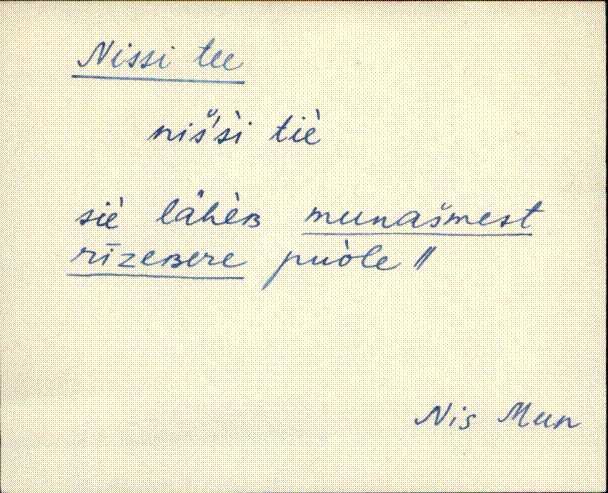 Nissi tee
niš́šì tiè
siè lähèʙ munašmest
rīzeʙere puòle //
Nis Mun